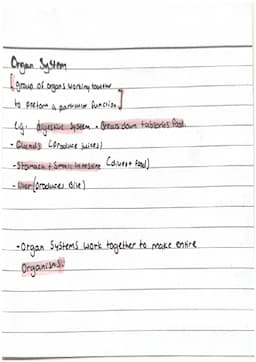 Organ System
[group of organs working together
to preform a particular function]
e.g. digestive system • Breaks down + absorbs food.
- Glands (produce juices)
- Stomach + Small intestine (digest food)
- Liver (produces bile)
- Organ Systems work together to make entire
Organisms.